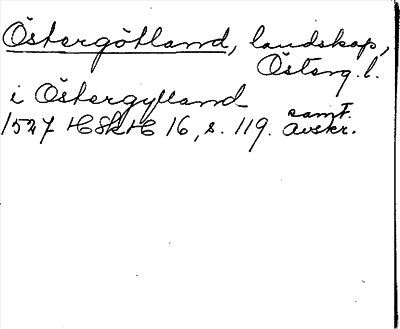 Östergötland, landskap,
Österg. l.
i Östergylland
1527 HSkH 16, s. 119. samt. avskr.